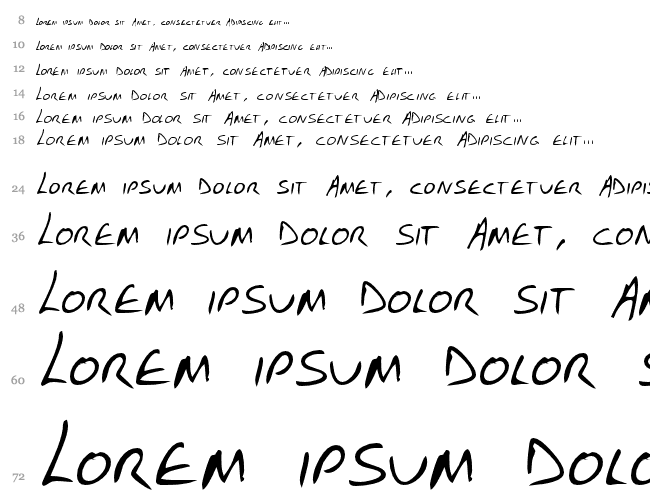 8 Lorem ipsum Dolor sit Amet, consectetuer Adipiscing elit...
10 Lorem ipsum Dolor sit Amet, consectetuer Adipiscing elit...
12 Lorem ipsum Dolor sit Amet, consectetuer Adipiscing elit...
14 Lorem ipsum Dolor sit Amet, consectetuer Adipiscing elit...
16 Lorem ipsum Dolor sit Amet, consectetuer Adipiscing elit...
18 Lorem ipsum Dolor sit Amet, consectetuer Adipiscing elit...
24 Lorem ipsum Dolor sit Amet, consectetuer Adipis
36 Lorem ipsum Dolor sit Amet, con
48 Lorem ipsum Dolor sit Am
60 Lorem ipsum Dolor s
72 Lorem ipsum Dolo